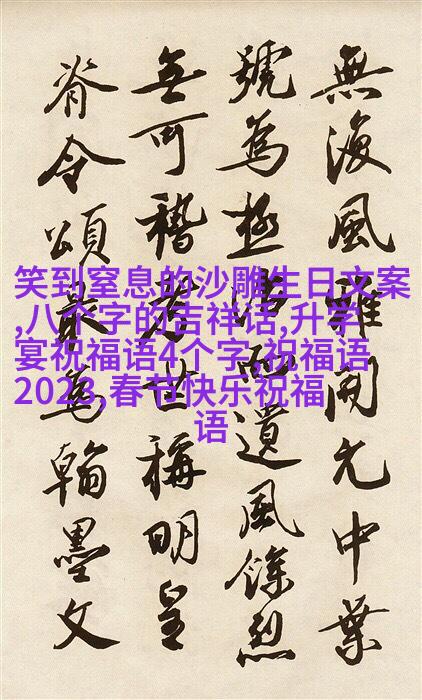 無復風雅開元中葉
號為極治而遺風餘烈
無可稽考世稱明皇
脊令頌最為翰墨文
笑到窒息的沙雕生日文案
,八个字的吉祥话,升学
宴祝福语4个字,祝福语
2023,春节快乐祝福
语